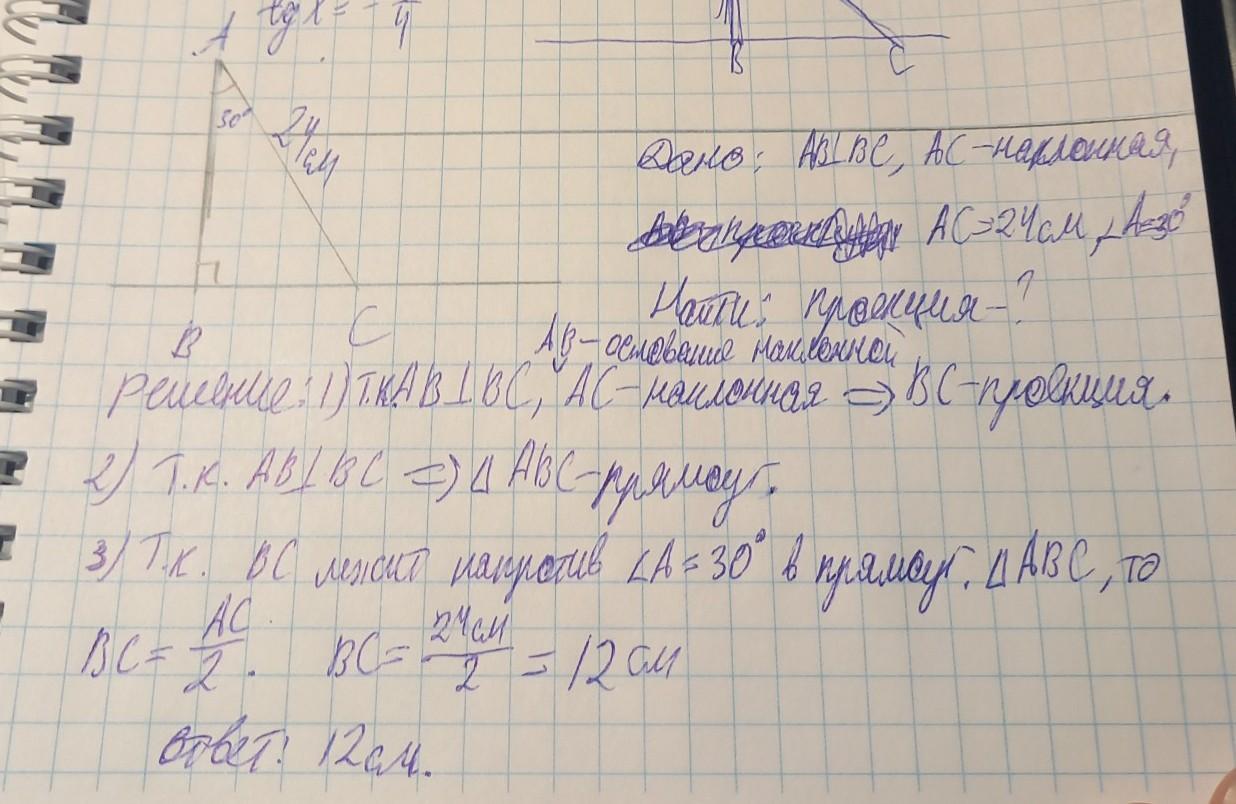 tg x = - /4
A
B
C
30°
24 см
Дано: AB⊥BC, AC-наклонная,
AC=24см, ∠A=30°
Найти: проекция-?
B
C
AB-основание наклонной
Решение: 1) Т.к. AB⊥BC, AC-наклонная ⇒ BC-проекция.
2) Т.к. AB⊥BC ⇒ Δ ABC-прямоуг.
3) Т.к. BC лежит напротив ∠A=30° в прямоуг. Δ ABC, то
BC = AC/2. BC = 24см/2 = 12 см
Ответ: 12см.